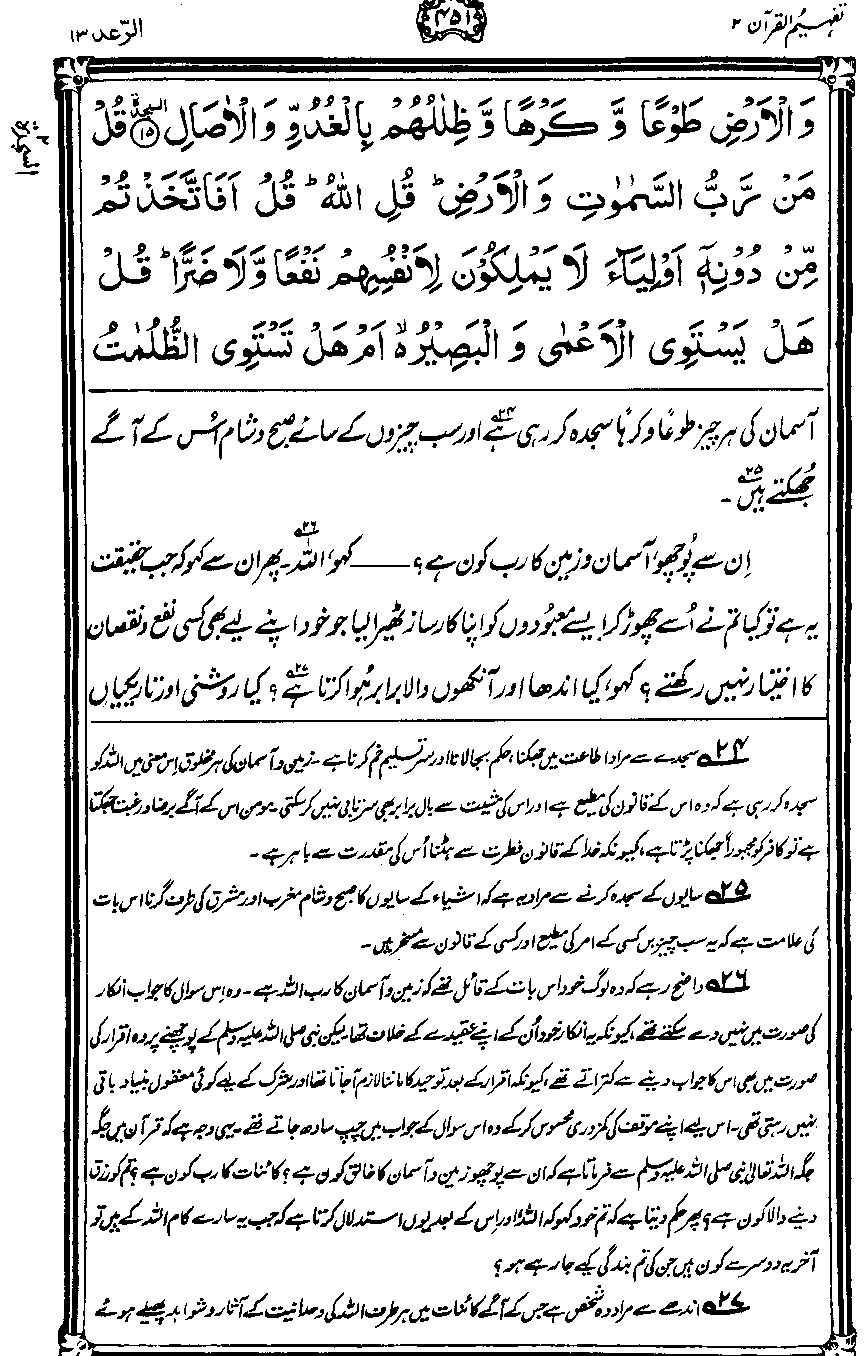 تفہیم القرآن ۲
۴۵۱
الرّعد ۱۳
وَالْاَرْضِ طَوْعًا وَّ كَرْهًا وَّ ظِلٰلُهُمْ بِالْغُدُوِّ وَالْاٰصَالِ السجدة ۱۵ قُلْ
السجدة ۲
مَنْ رَّبُّ السَّمٰوٰتِ وَالْاَرْضِ ؕ قُلِ اللّٰهُ ؕ قُلْ اَفَاتَّخَذْتُمْ
مِّنْ دُوْنِهٖۤ اَوْلِيَآءَ لَا يَمْلِكُوْنَ لِاَنْفُسِهِمْ نَفْعًا وَّلَا ضَرًّا ؕ قُلْ
هَلْ يَسْتَوِى الْاَعْمٰى وَ الْبَصِيْرُ ۙ اَمْ هَلْ تَسْتَوِى الظُّلُمٰتُ
آسمان کی ہر چیز طوعًا و کرہًا سجدہ کر رہی ہے ۲۴ اور سب چیزوں کے سائے صبح و شام اُس کے آگے
جُھکتے ہیں ۲۵۔
اِن سے پُوچھو، آسمان و زمین کا رب کون ہے؟ —— کہو، اللہ ۲۶۔ پھر ان سے کہو کہ جب حقیقت
یہ ہے تو کیا تم نے اُسے چھوڑ کر ایسے معبُودوں کو اپنا کارساز ٹھیرا لیا جو خود اپنے لیے بھی کسی نفع و نقصان
کا اختیار نہیں رکھتے؟ کہو، کیا اندھا اور آنکھوں والا برابر ہُوا کرتا ہے ۲۷؟ کیا روشنی اور تاریکیاں
۲۴ سجدے سے مراد اطاعت میں جھکنا، حکم بجا لانا اور سرِ تسلیم خم کرنا ہے۔ زمین و آسمان کی ہر مخلوق اِس معنی میں اللہ کو
سجدہ کر رہی ہے کہ وہ اس کے قانون کی مطیع ہے اور اس کی مشیت سے بال برابر بھی سرتابی نہیں کر سکتی۔ مومن اس کے آگے برضا و رغبت جھکتا
ہے تو کافر کو مجبوراً جھکنا پڑتا ہے، کیونکہ خدا کے قانونِ فطرت سے ہٹنا اُس کی مقدرت سے باہر ہے۔
۲۵ سایوں کے سجدہ کرنے سے مراد یہ ہے کہ اشیاء کے سایوں کا صبح و شام مغرب اور مشرق کی طرف گرنا اس بات
کی علامت ہے کہ یہ سب چیزیں کسی کے امر کی مطیع اور کسی کے قانون سے مسخر ہیں۔
۲۶ واضح رہے کہ وہ لوگ خود اس بات کے قائل تھے کہ زمین و آسمان کا رب اللہ ہے۔ وہ اِس سوال کا جواب انکار
کی صورت میں نہیں دے سکتے تھے، کیونکہ یہ انکار خود اُن کے اپنے عقیدے کے خلاف تھا۔ لیکن نبی صلی اللہ علیہ وسلم کے پوچھنے پر وہ اقرار کی
صورت میں بھی اس کا جواب دینے سے کتراتے تھے، کیونکہ اقرار کے بعد توحید کا ماننا لازم آ جاتا تھا اور شرک کے لیے کوئی معقول بنیاد باقی
نہیں رہتی تھی۔ اس لیے اپنے موقف کی کمزوری محسوس کر کے وہ اس سوال کے جواب میں چپ سادھ جاتے تھے۔ یہی وجہ ہے کہ قرآن میں جگہ
جگہ اللہ تعالیٰ نبی صلی اللہ علیہ وسلم سے فرماتا ہے کہ ان سے پوچھو زمین و آسمان کا خالق کون ہے؟ کائنات کا رب کون ہے؟ تم کو رزق
دینے والا کون ہے؟ پھر حکم دیتا ہے کہ تم خود کہو کہ اللہ، اور اِس کے بعد یوں استدلال کرتا ہے کہ جب یہ سارے کام اللہ کے ہیں تو
آخر یہ دوسرے کون ہیں جن کی تم بندگی کیے جا رہے ہو؟
۲۷ اندھے سے مراد وہ شخص ہے جس کے آگے کائنات میں ہر طرف اللہ کی وحدانیت کے آثار و شواہد پھیلے ہوئے